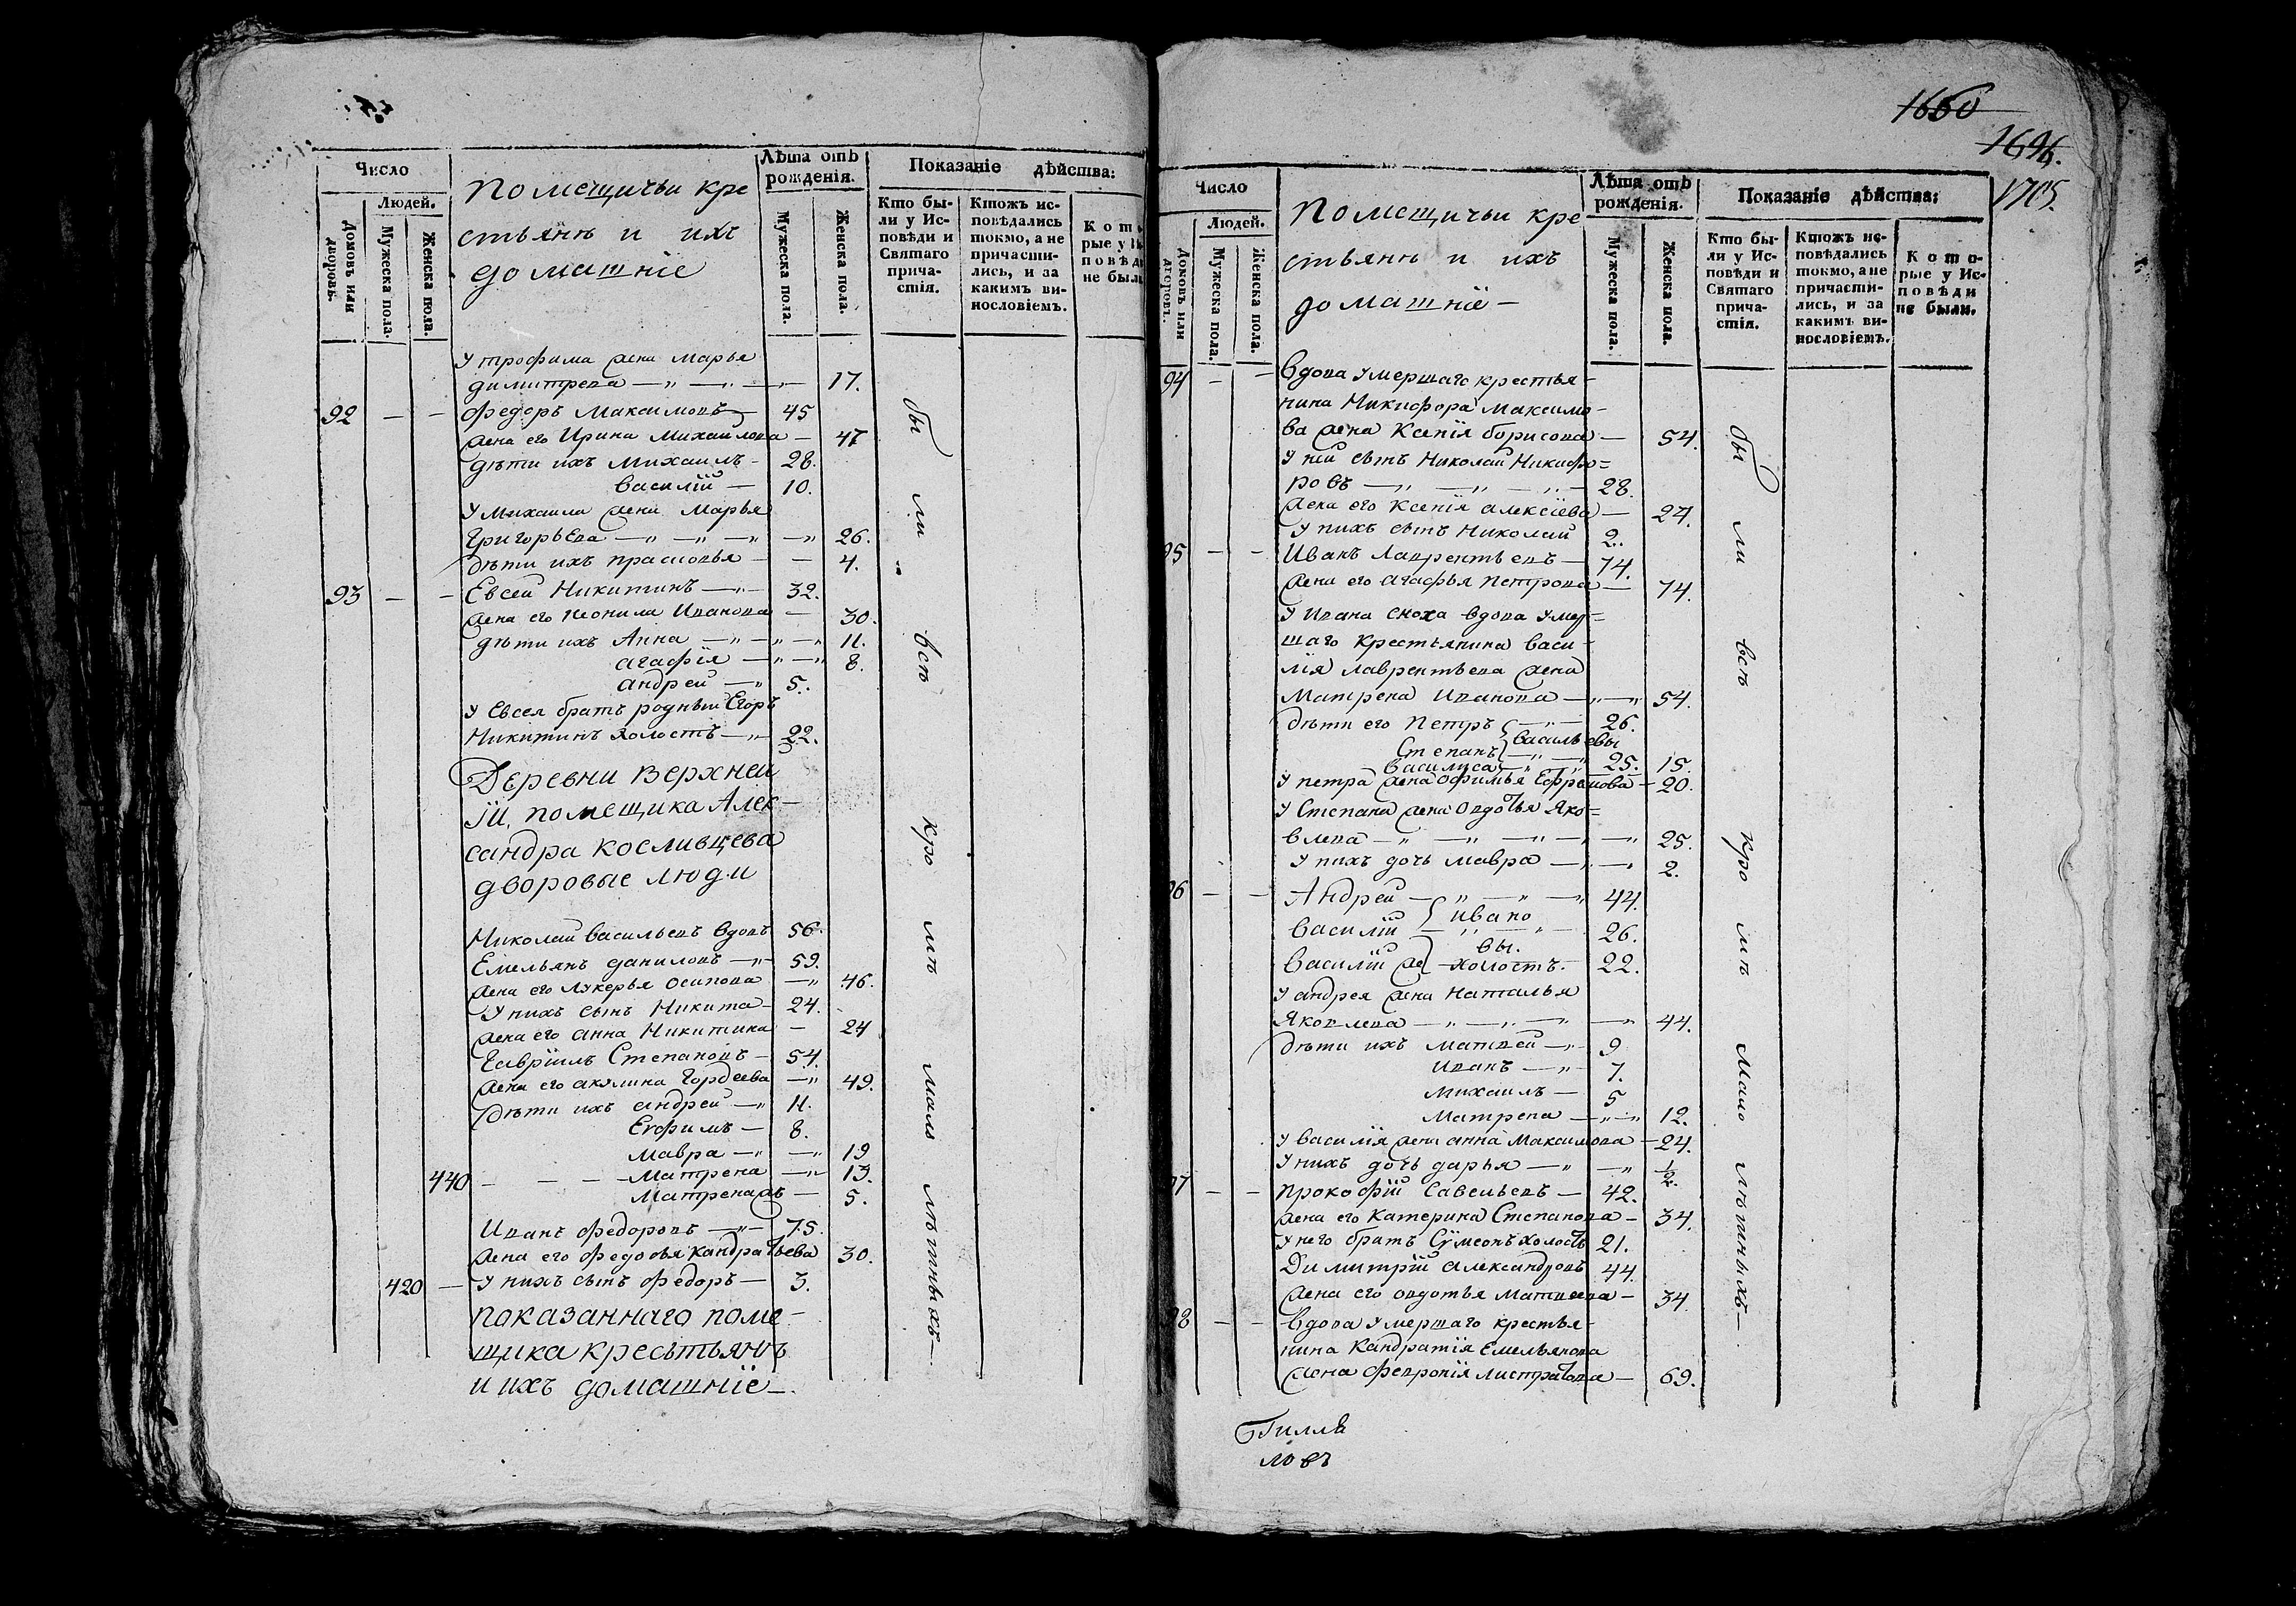 Число
Людей.
Домовъ или дворовъ.
Мужеска пола.
Женска пола.
Помещичьи кре
стьянъ и ихъ
домашніе
Лѣта отъ рожденія.
Мужеска пола.
Женска пола.
Показаніе дѣйства:
Кто бы-
ли у Ис-
повѣди и
Святаго
прича-
стія.
Ктожъ ис-
повѣдались
токмо, а не
причасти-
лись, и за
какимъ ви-
нословіемъ.
Кото
рые у И
повѣд
не был
У трофима жена Марья
димитрева — „ — „ — 17.
92 — — Федоръ Максимовъ — 45
жена его Ирина Михаилова — 47
дѣти ихъ Михаилъ — 28.
Василій — 10.
У Михаила жена Марья
Григорьева — „ — „ — „ — „ 26.
дѣти ихъ прасковья — — 4.
93 — — Евсей Никитинъ — „ — 32.
жена его Неонила Иванова — 30.
дѣти ихъ Анна — „ — „ — „ 11.
агафія — „ — „ 8.
андрей — „ 5.
У Евсея братъ родный Егоръ
Никитинъ холостъ — „ 22.
Деревни Верхней
помещика Алек-
сандра Косливцева
дворовые люди
Николай Васильевъ вдовъ 56.
Емельянъ даниловъ — „ — 59.
жена его Лукерья Осипова — „ 46.
У нихъ сынъ Никита — 24.
жена его анна Никитина — 24
Гаврiилъ Степановъ — 54.
жена его акулина Гордеева — „ 49.
дѣти ихъ андрей — „ 11.
Ефимъ — 8.
Мавра — „ — „ 19
440 — — — Матрена — „ — 13.
Матрена жъ — 5.
Иванъ Федоровъ — „ — 75.
жена его Федосья Кандратьева 30.
420 — У нихъ сынъ Федоръ — 3.
показаннаго поме-
щика крестьянъ
и ихъ домашніе —.
бы ли всѣ кро мѣ мало лѣтныхъ —
1660
1696.
1705.
Число
Людей.
Домовъ или дворовъ.
Мужеска пола.
Женска пола.
Помещичьи кре
стьянъ и ихъ
домашніе —
Лѣта отъ рожденія.
Мужеска пола.
Женска пола.
Показаніе дѣйства:
Кто бы-
ли у Ис-
повѣди и
Святаго
прича-
стія.
Ктожъ ис-
повѣдались
токмо, а не
причасти-
лись, и за
какимъ ви-
нословіемъ.
Кото-
рые у Ис-
повѣди
не были.
94 — — Вдова умершаго крестья-
нина Никифора Максимо-
ва жена Ксенія борисова — 54.
У ней сынъ Николай Никифо=
ровъ — „ — „ — „ — 28.
жена его Ксенія алексіева — 27.
У нихъ сынъ Николай 2.
95 — — Иванъ Лаврентьевъ — 74.
жена его агафья Петрова — 74.
У Ивана сноха вдова умер=
шаго крестьянина васи-
лія лаврентьева жена
Матрена Иванова — „ — „ 54.
дѣти его Петръ — „ — 26.
Степанъ } Васильевы 25.
Василиса — „ — „ 15.
У петра жена офимья Ефремова — 20.
У Степана жена Овдотья Яко=
влева — „ — „ — „ — „ — „ 25.
У нихъ дочь мавра — „ — „ 2.
96 — — Андрей — „ — „ — „ 44.
Василій { Ивано 26.
вы.
Василій же } холостъ. 22.
У андрея жена Наталья
Яковлева — „ — „ — „ — „ 44.
дѣти ихъ матвей — „ 9
Иванъ — „ 7.
Михаилъ — 5
Матрена — „ — „ 12.
У василія жена анна Максимова — 24.
У нихъ дочь дарья — „ — „ 1/2.
97 — — Прокофій Савельевъ — 42.
жена его Катерина Степанова — 34.
У него братъ Сумеонъ холостъ 21.
Димитрій александровъ 44.
жена его овдотья матвеева — 34.
98 — — Вдова умершаго крестья-
нина Кандратія Емельянова
жена Феврония листратова — 69.
бы ли всѣ кро мѣ мало лѣтныхъ —
ловъ